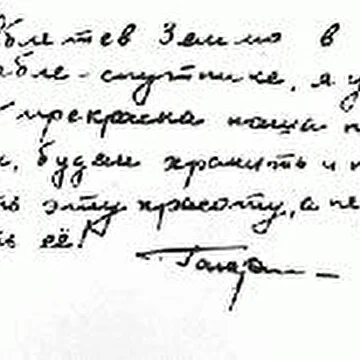 блетев Землю в
абле-спутнике, я у
прекрасна наша п
и, будем хранить и п
ть эту красоту, а не
ть её!
Гагарин